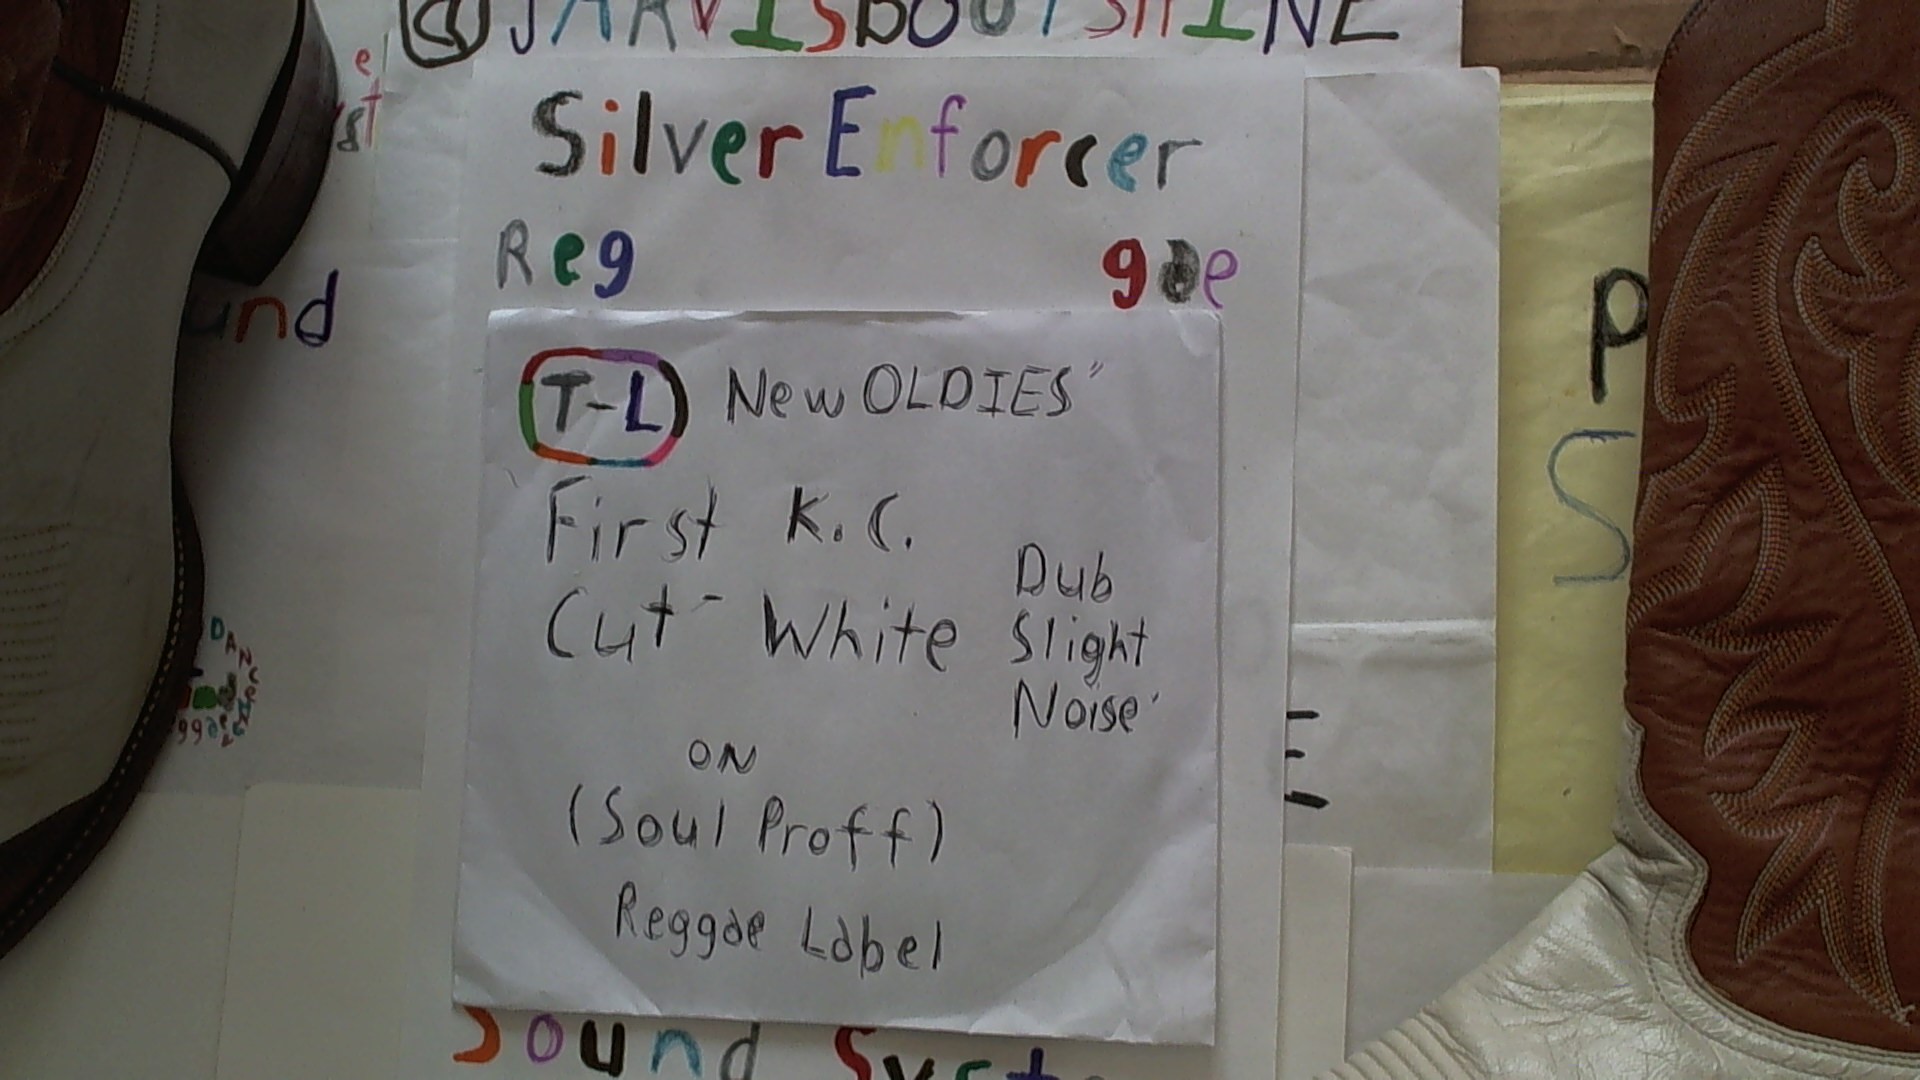 @JARVISBOOTSHINE
Silver Enforcer
Reg gae
T-L New OLDIES"
First K.C.
Cut - White
Dub
Slight
Noise'
ON
(Soul Proff)
Reggae Label
Sound Syste
und
P
S
E